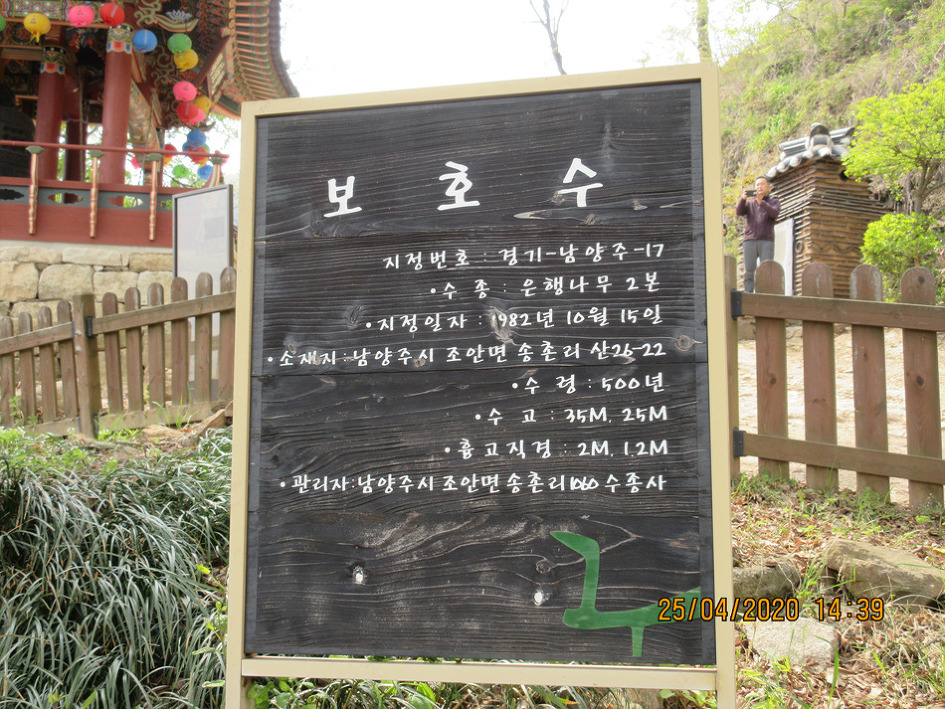 보호수
지정번호 : 경기-남양주-17
•수 종 : 은행나무 2본
•지정일자 : 1982년 10월 15일
•소재지:남양주시 조안면 송촌리 산26-22
•수 령 : 500년
•수 고 : 35M, 25M
•흉고직경 : 2M, 1.2M
•관리자:남양주시 조안면 송촌리 1060 수종사
25/04/2020 14:39